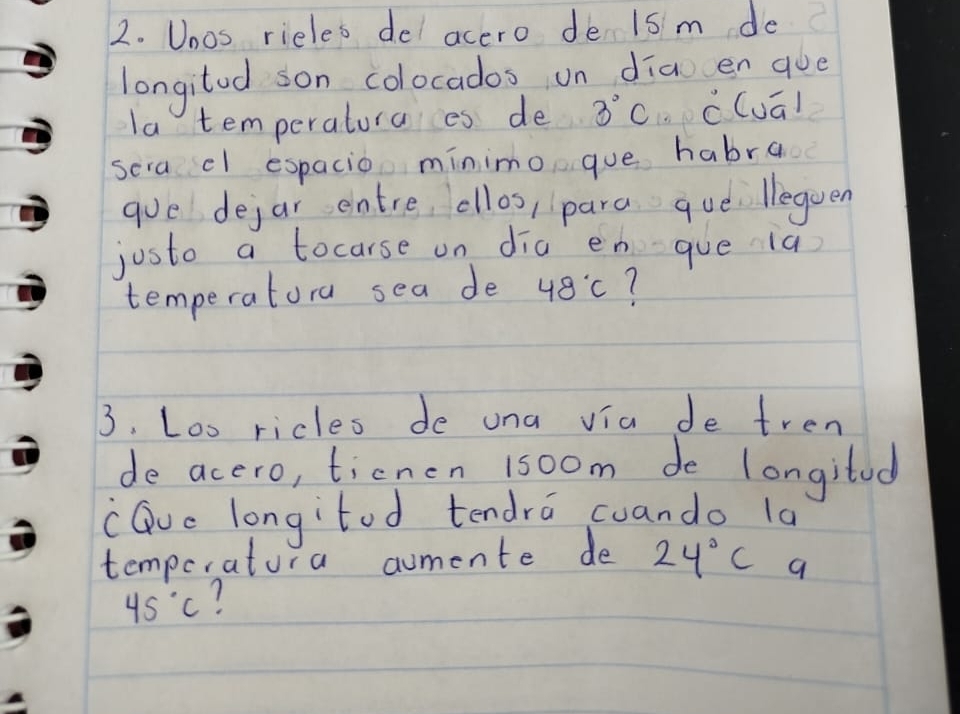 2. Unos rieles de acero de 15 m de
longitud son colocados un día en que
la temperatura es de 3°C. ¿Cuál
sera el espacio mínimo que habra
que dejar entre ellos, para que lleguen
justo a tocarse un día en que la
temperatura sea de 48°C?
3. Los rieles de una vía de tren
de acero, tienen 1500m de longitud
¿Que longitud tendrá cuando la
temperatura aumente de 24°C a
45°C?